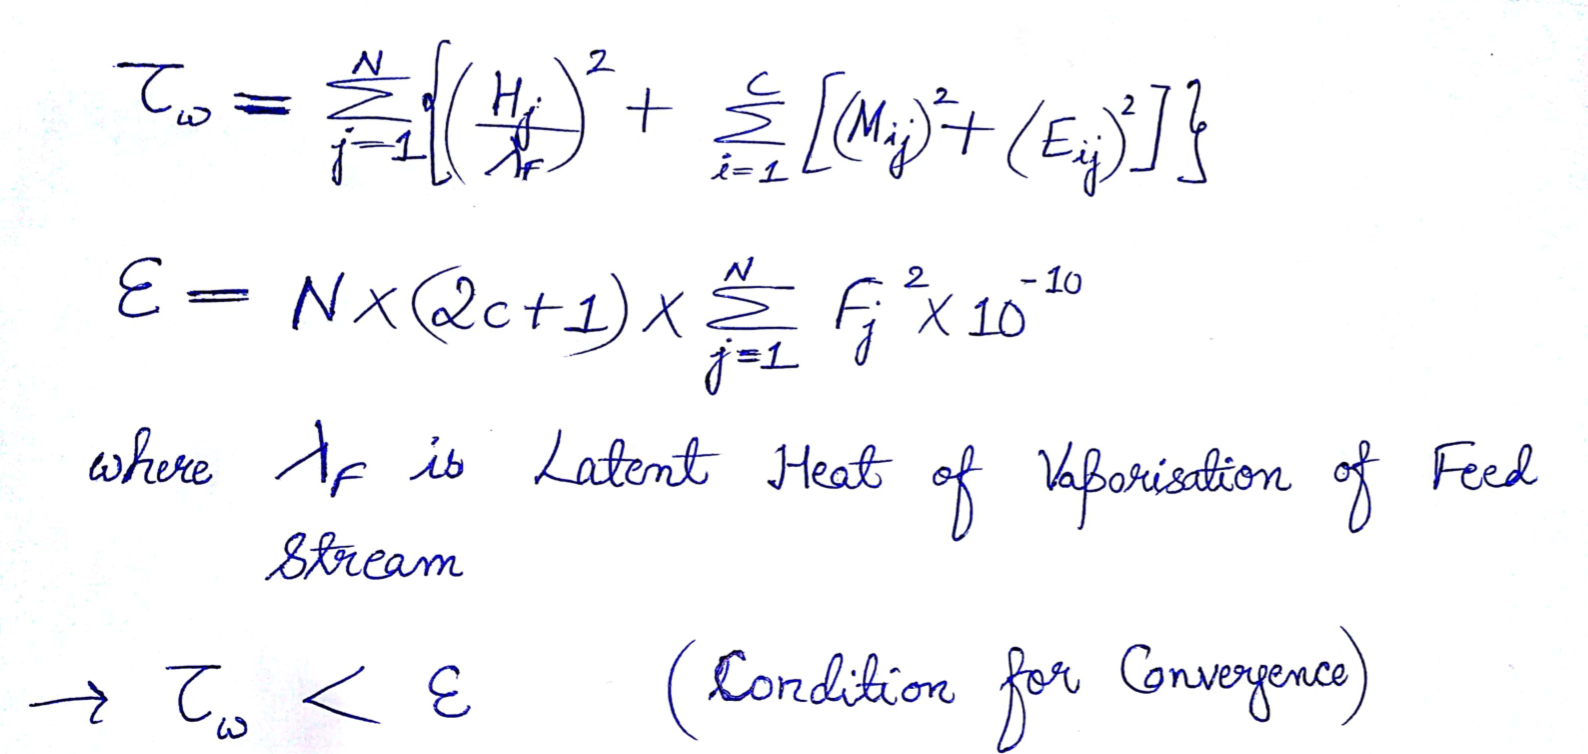 τ_ω = Σ_{j=1}^{N} { (H_j / λ_F)^2 + Σ_{i=1}^{C} [ (M_ij)^2 + (E_ij)^2 ] }
ε = N × (2c+1) × Σ_{j=1}^{N} F_j^2 × 10^{-10}
where λ_F is Latent Heat of Vaporisation of Feed
Stream
→ τ_ω < ε (Condition for Convergence)